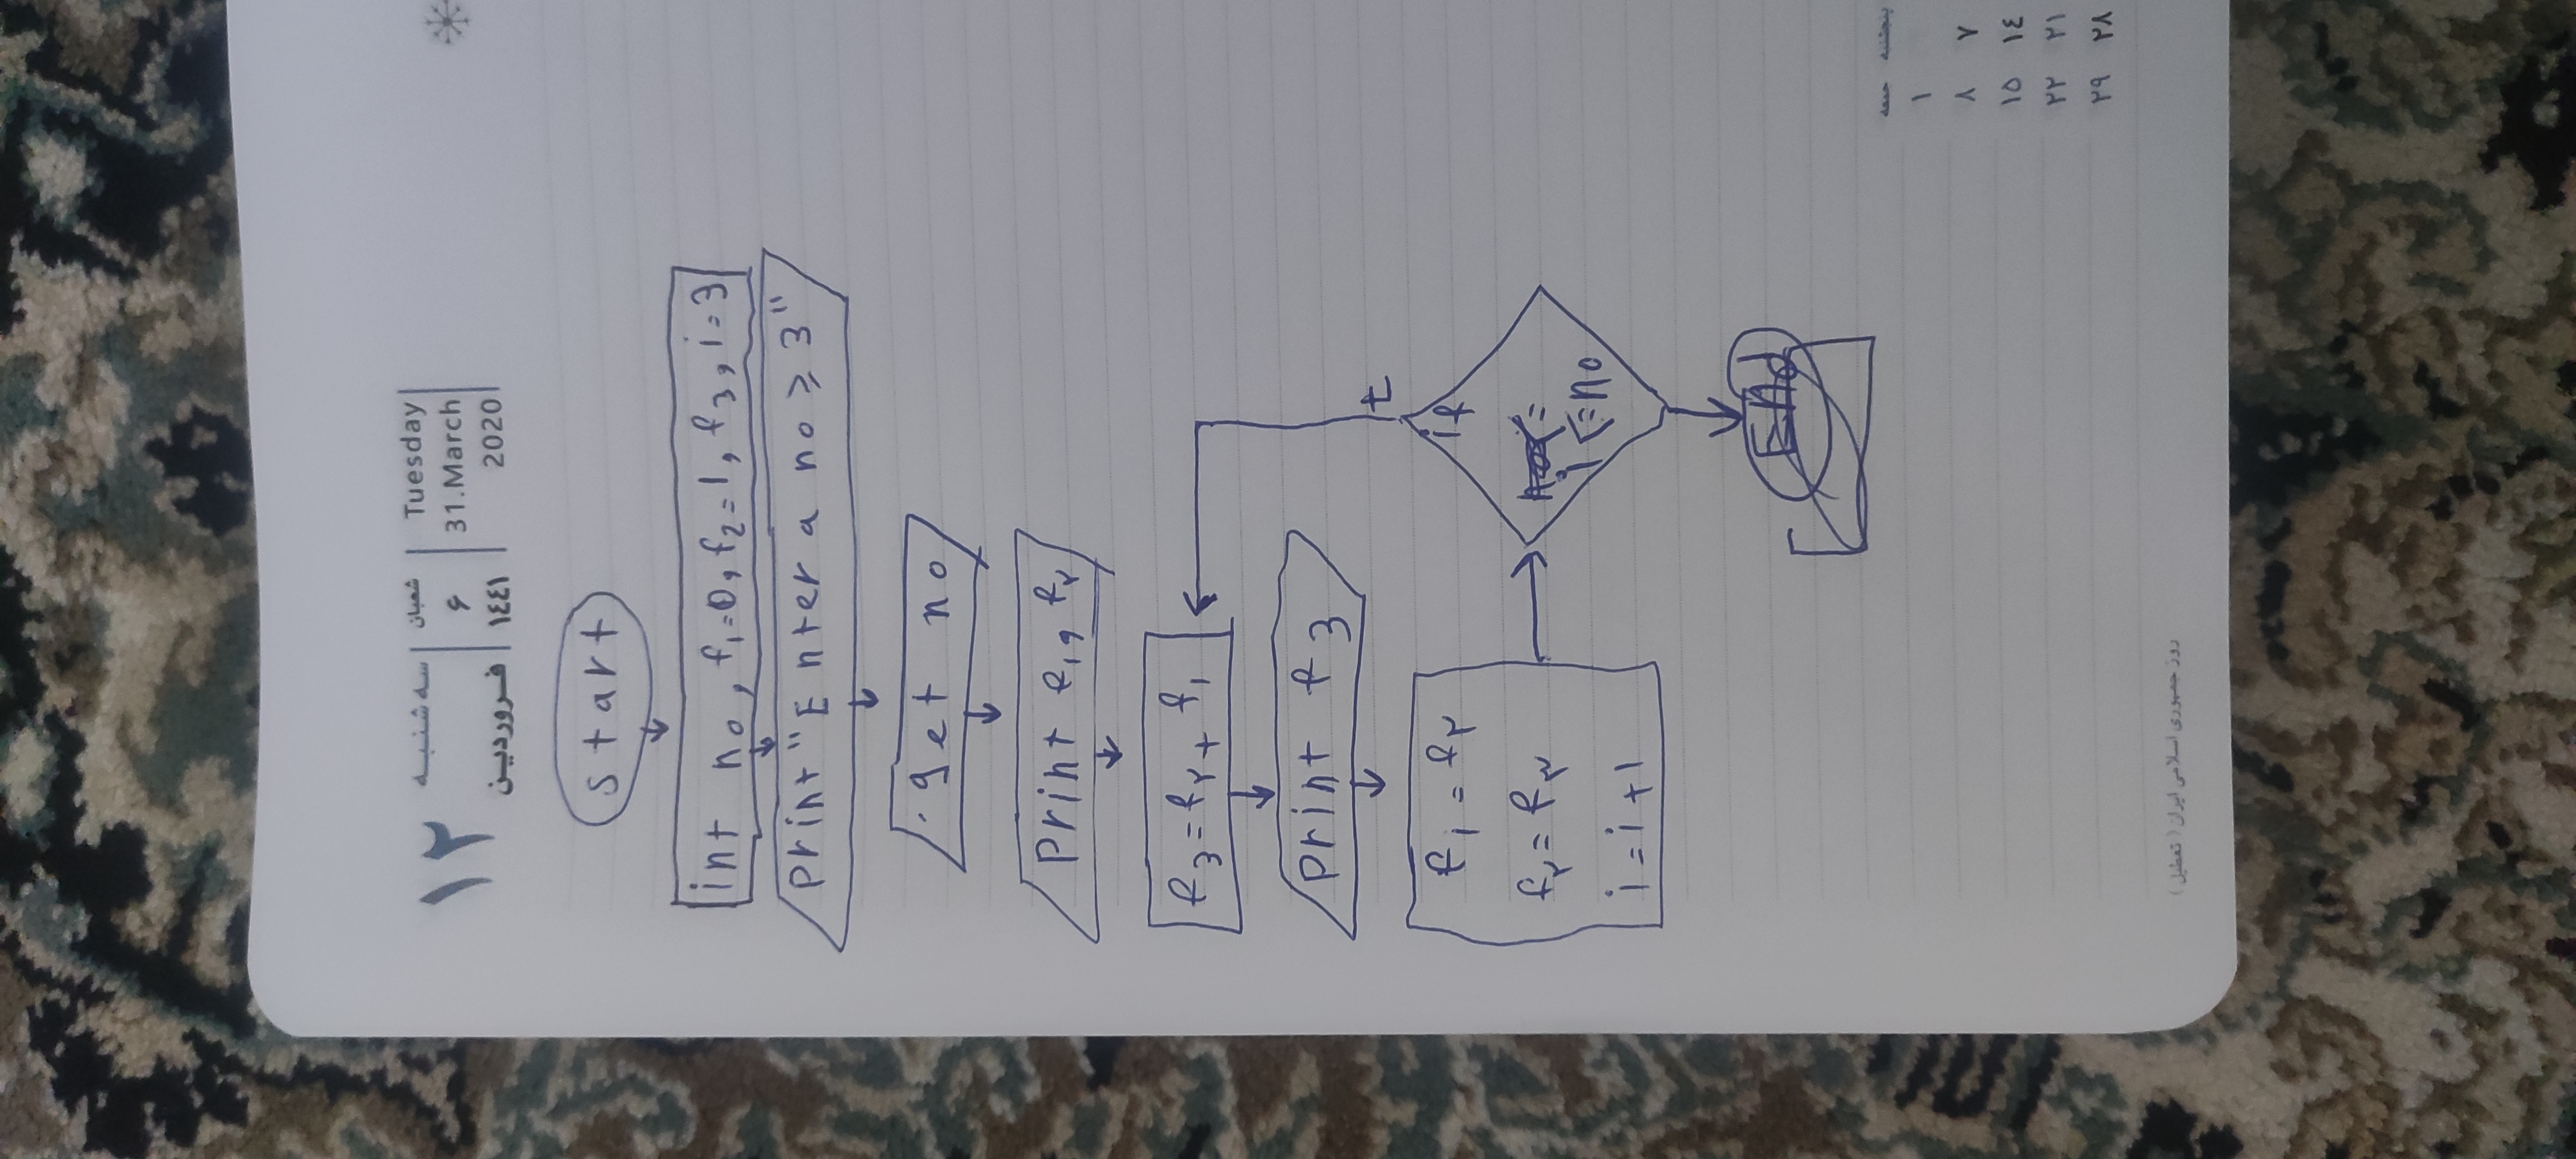 ۱۲
سه شنبه
فروردین
شعبان
۶
١٤٤١
Tuesday
31.March
2020
start
int no, f1=0, f2=1, f3, i=3
print "Enter a no ≥ 3"
get no
Print f1, f۲
f3=f۲+ f1
print f3
f1 = f۲
f۲ = f۳
i = i +1
if
i <= no
t
End
پنجشنبه جمعه
۱
۷ ۸
١٤ ۱۵
۲۱ ۲۲
۲۸ ۲۹
روز جمهوری اسلامی ایران ( تعطیل )